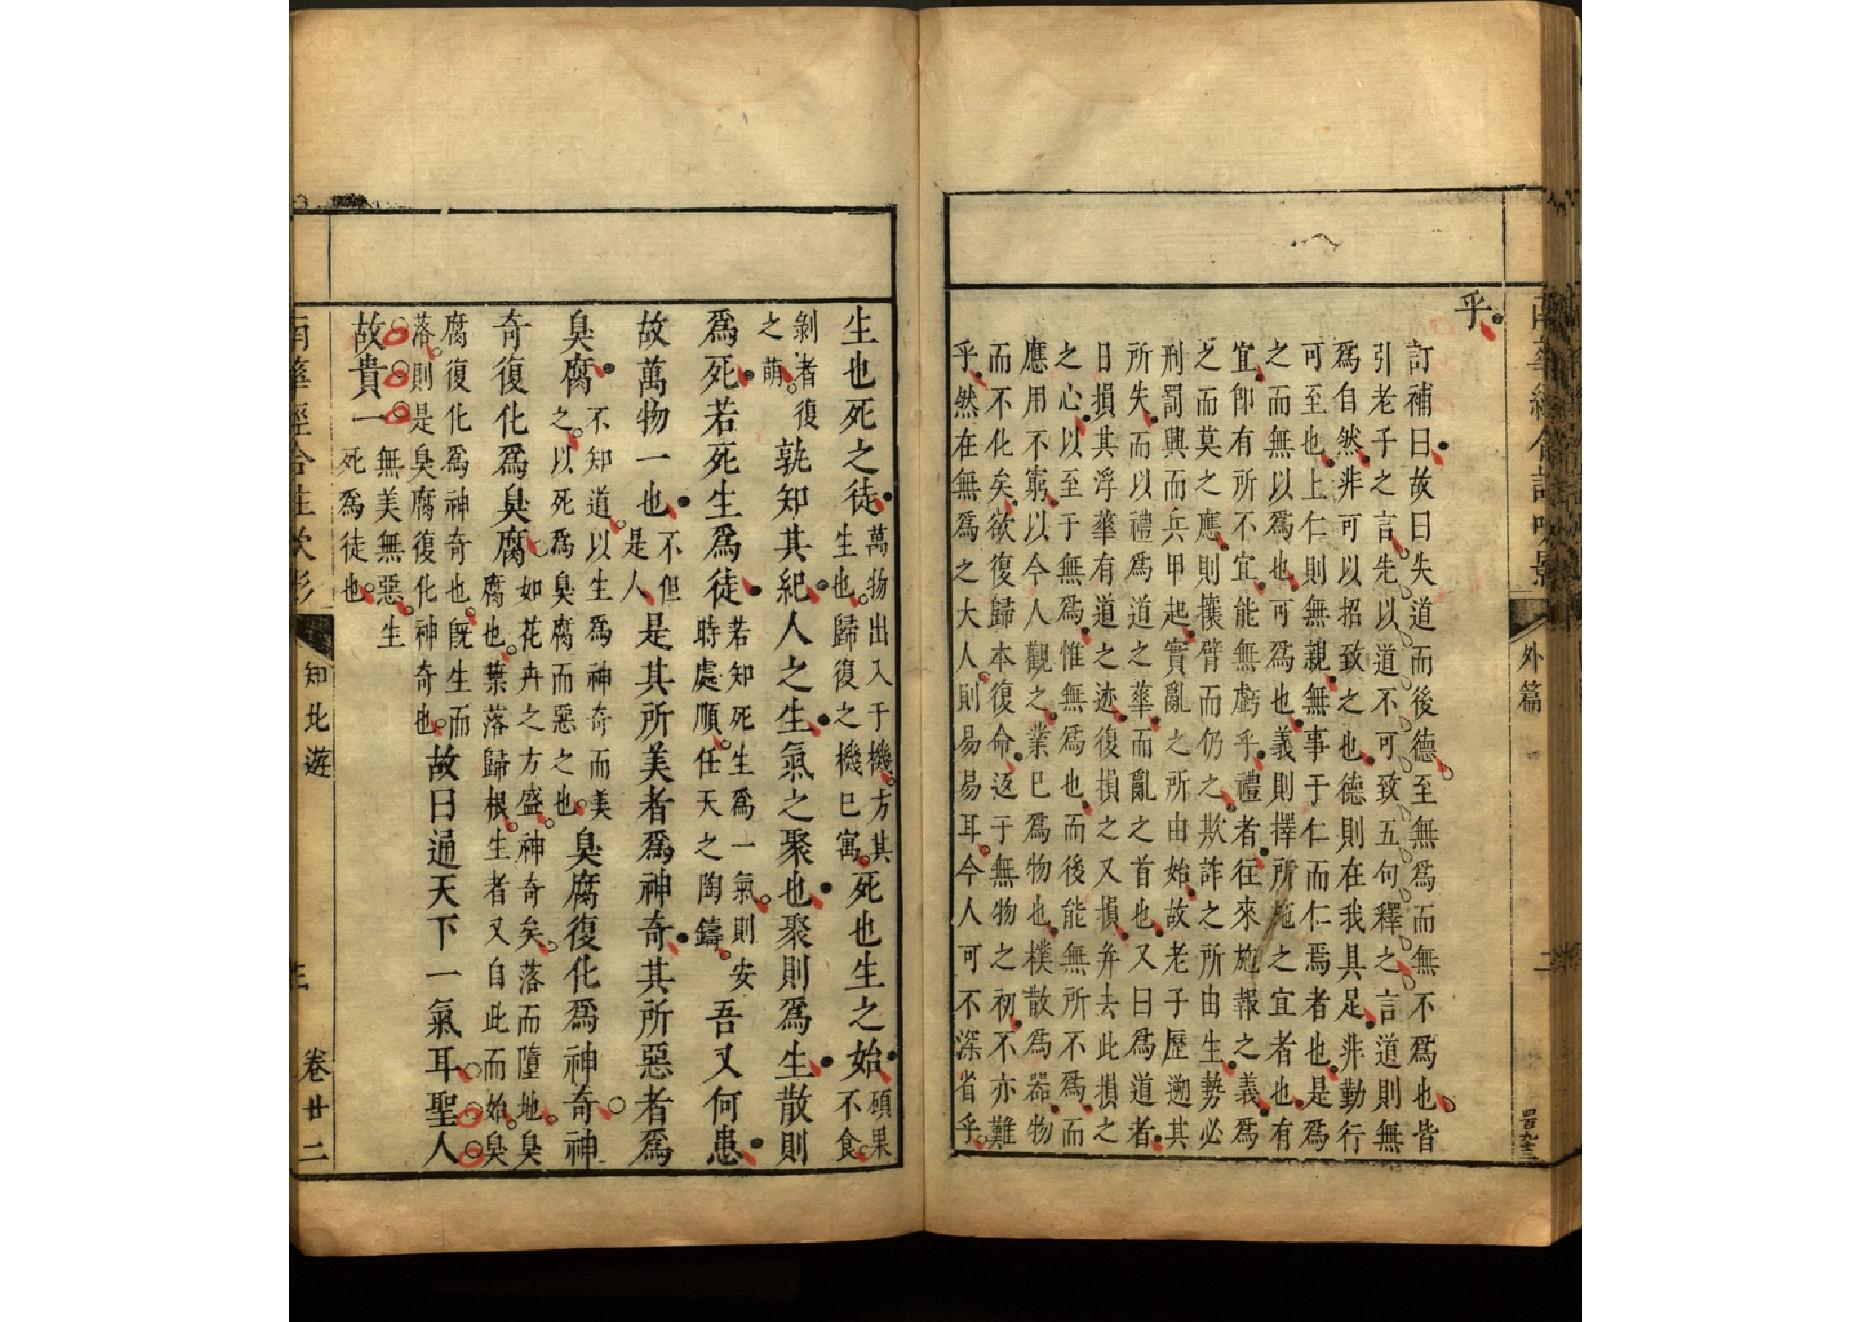 南華經合註吹影 外篇 二
乎
訂補曰故曰失道而後德至無爲而無不爲也皆
引老子之言先以道不可致五句釋之言道則無
爲自然非可以招致之也德則在我具足非勤行
可至也上仁則無親無事于仁而仁焉者也是爲
之而無以爲也可爲也義則擇所施之宜者也有
宜卽有所不宜能無虧乎禮者往來施報之義爲
之而莫之應則攘臂而仍之欺詐之所由生勢必
刑罰興而兵甲起實亂之所由始故老子歷遡其
所失而以禮爲道之華而亂之首也又曰爲道者
日損其浮華有道之迹復損之又損弁去此損之
之心以至于無爲惟無爲也而後能無所不爲而
應用不窮以今人觀之業已爲物也樸散爲器物
而不化矣欲復歸本復命返于無物之初不亦難
乎然在無爲之大人則易易耳今人可不深省乎
生也死之徒萬物出入于機方其生也歸復之機已寓死也生之始碩果不食
剝者復之萌孰知其紀人之生氣之聚也聚則爲生散則
爲死若死生爲徒若知死生爲一氣則安時處順任天之陶鑄吾又何患
故萬物一也不但是人是其所美者爲神奇其所惡者爲
臭腐不知道以生爲神奇而美之以死爲臭腐而惡之也臭腐復化爲神奇神
奇復化爲臭腐如花卉之方盛神奇矣落而墮地臭腐也葉落歸根生者又自此而始臭
腐復化爲神奇也旣生而落則是臭腐復化神奇也故曰通天下一氣耳聖人
故貴一無美無惡生死爲徒也
南華經合註吹影 知北遊 三 卷廿二